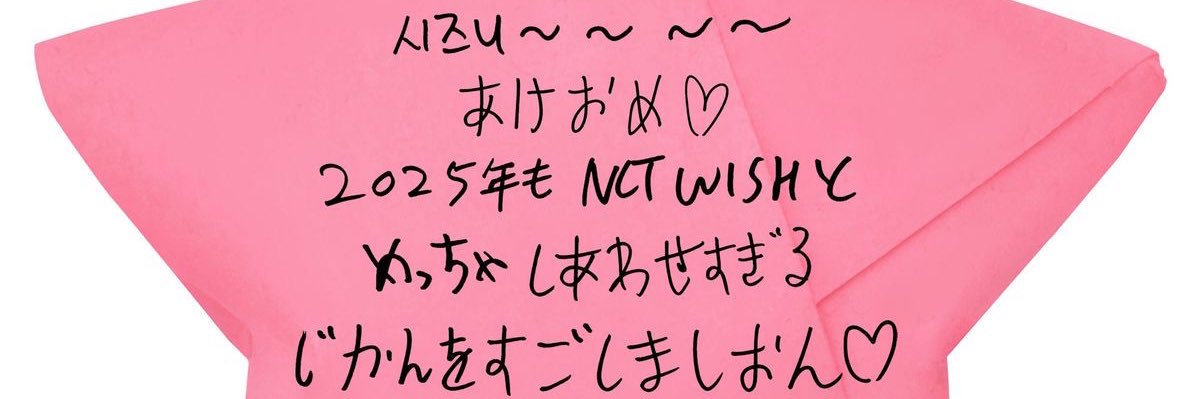 시즈니~~~~
あけおめ♡
2025年も NCT WISHと
めっちゃしあわせすぎる
じかんをすごしましおん♡